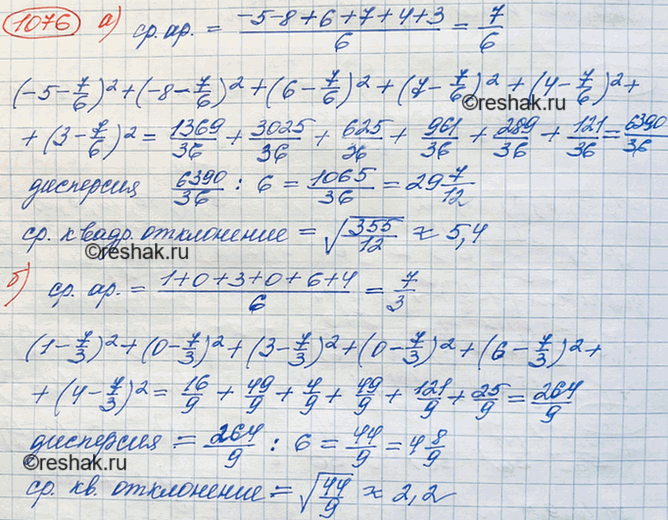 1076 а) ср. ар. = (-5-8+6+7+4+3)/6 = 7/6
(-5-7/6)² + (-8-7/6)² + (6-7/6)² + (7-7/6)² + (4-7/6)² +
©reshak.ru
+ (3-7/6)² = 1369/36 + 3025/36 + 625/36 + 961/36 + 289/36 + 121/36 = 6390/36
дисперсия 6390/36 : 6 = 1065/36 = 29 7/12
ср. квадр. отклонение = √(355/12) ≈ 5,4
©reshak.ru
б) ср. ар. = (1+0+3+0+6+4)/6 = 7/3
(1-7/3)² + (0-7/3)² + (3-7/3)² + (0-7/3)² + (6-7/3)² +
+ (4-7/3)² = 16/9 + 49/9 + 4/9 + 49/9 + 121/9 + 25/9 = 264/9
дисперсия = 264/9 : 6 = 44/9 = 4 8/9
©reshak.ru
ср. кв. отклонение = √(44/9) ≈ 2,2